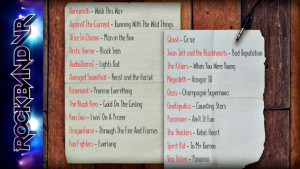 ROCKBAND VR
Aerosmith - Walk This Way
Against The Current - Running With The Wild Things
Alice In Chains - Man in the Box
Arctic Horror - Black Seas
AudioDamn! - Lights Out
Avenged Sevenfold - Beast and the Harlot
Basement - Promise Everything
The Black Keys - Gold On The Ceiling
Bon Jovi - Livin' On A Prayer
Dragonforce - Through The Fire And Flames
Foo Fighters - Everlong
Ghost - Cirice
Joan Jett and the Blackhearts - Bad Reputation
The Killers - When You Were Young
Megadeth - Hangar 18
Oasis - Champagne Supernova
OneRepublic - Counting Stars
Paramore - Ain't It Fun
The Shelters - Rebel Heart
Spirit Kid - To My Romeo
Van Halen - Panama